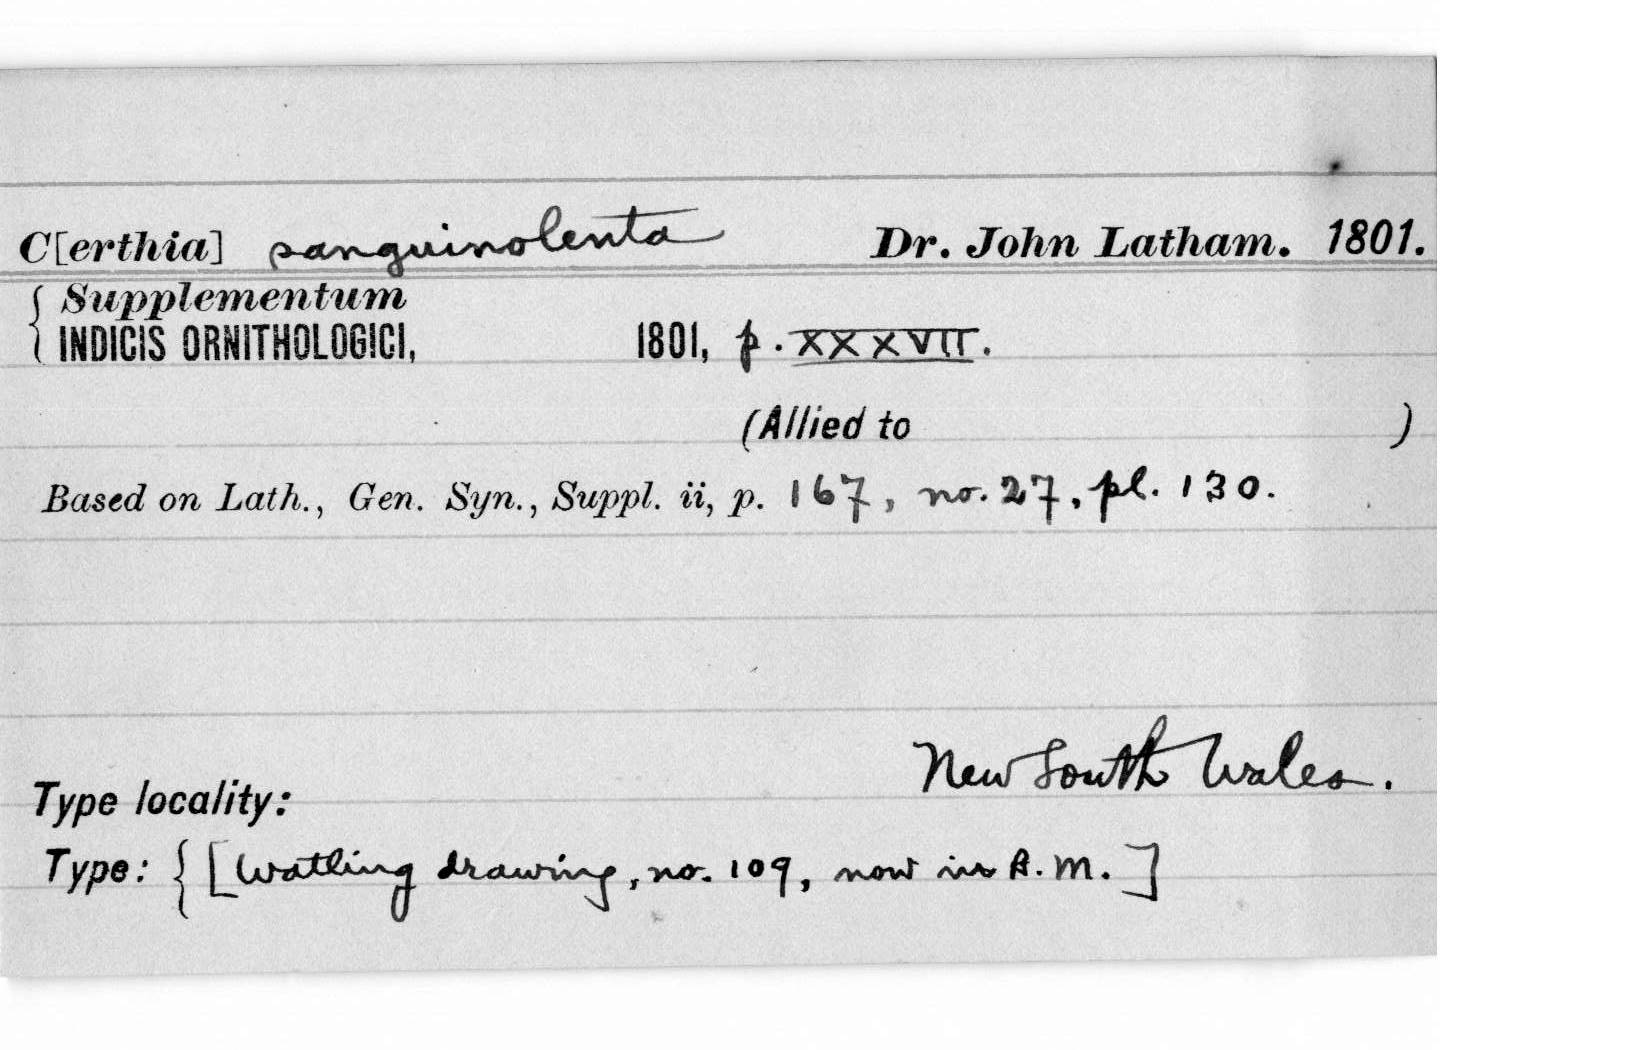 C[erthia] sanguinolenta Dr. John Latham. 1801.
{ Supplementum
INDICIS ORNITHOLOGICI, 1801, p. XXXVII.
(Allied to )
Based on Lath., Gen. Syn., Suppl. ii, p. 167, no. 27, pl. 130.
New South Wales.
Type locality:
Type: { [Watling drawing, no. 109, now in B.M.]